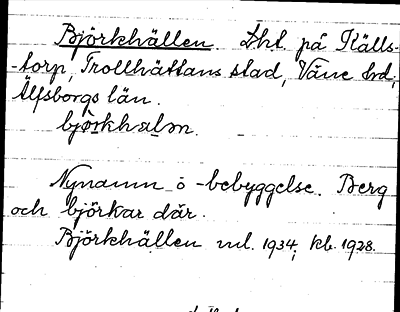 Björkhällen. Lht. på Källs-
-torp, Trollhättans stad, Väne hd,
Älfsborgs län.
Nynamn o -bebyggelse. Berg
och björkar där.
Björkhällen ml. 1934, kb. 1928.